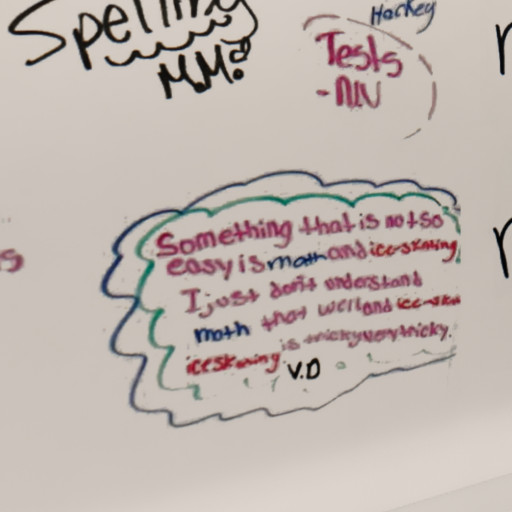 Spelling
M.M.
Hockey
Tests
-NIV
Something that is not so
easy is math and ice-skating
I just don't understand
math that well and ice-ska
iceskating is tricky very tricky.
V.D